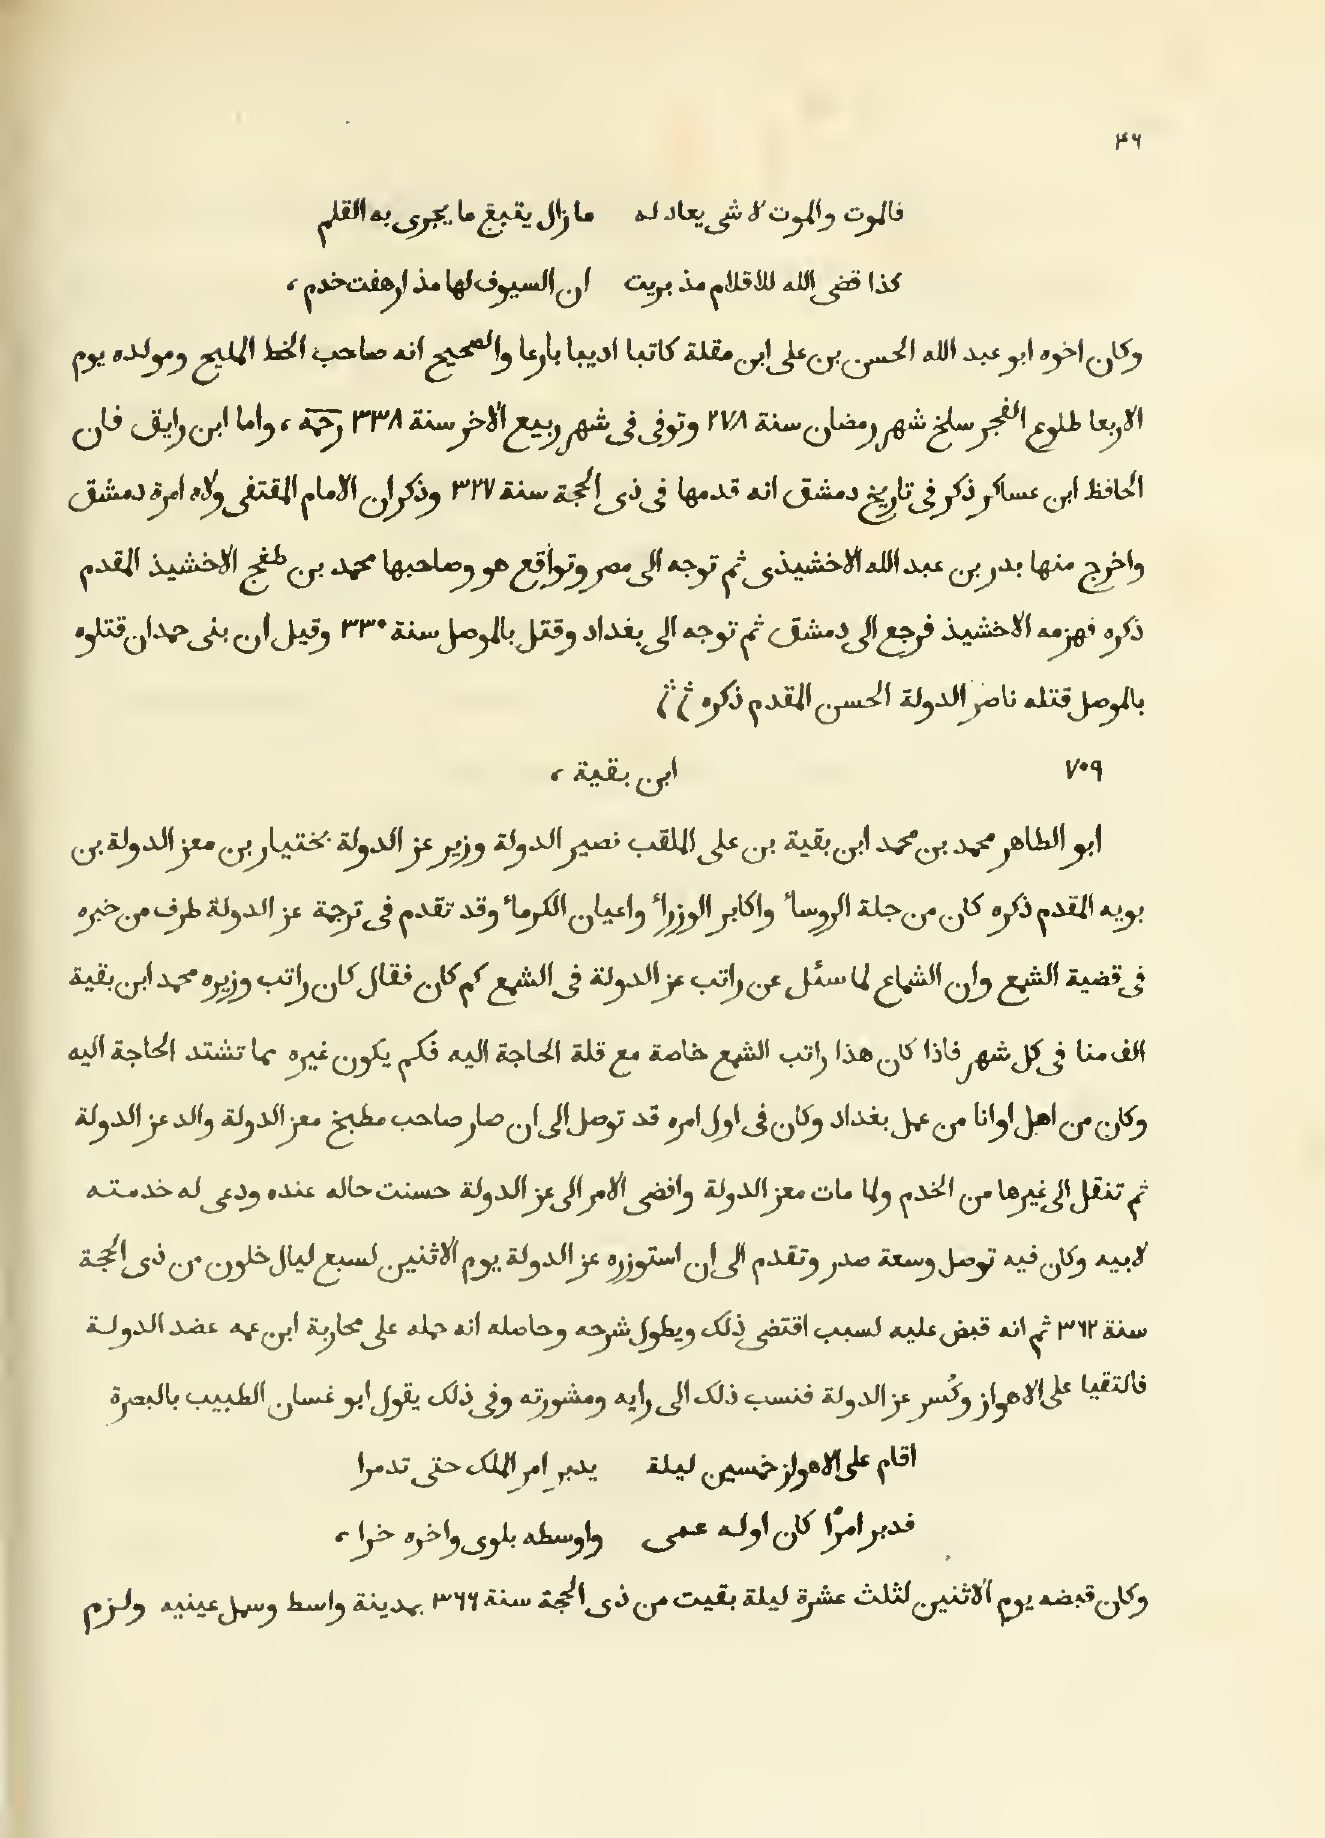 ٤٦
فالموت والموت لا شى يعادله ما زال يتبع ما يجرى به القلم
كذا قضى الله للاقلام مذ بريت ان السيوف لها مذ ارهفت خدم ،
وكان اخوه ابو عبد الله الحسن بن على ابن مقلة كاتبا اديبا بارعا والصحيح انه صاحب الخط المليح ومولده يوم
الاربعا طلوع الفجر سلخ شهر رمضان سنة ٢٧٨ وتوفى فى شهر ربيع الاخر سنة ٣٣٨ رحمة ، واما ابن رايق فان
الحافظ ابن عساكر ذكر فى تاريخ دمشق انه قدمها فى ذى الحجة سنة ٣٢٧ وذكر ان الامام المقتفى ولاه امرة دمشق
واخرج منها بدر بن عبد الله الاخشيذى ثم توجه الى مصر وتواقع هو وصاحبها محمد بن طغج الاخشيذ المقدم
ذكره فهزمه الاخشيذ فرجع الى دمشق ثم توجه الى بغداد وقتل بالموصل سنة ٣٣٠ وقيل ان بنى حمدان قتلوه
بالموصل قتله ناصر الدولة الحسن المقدم ذكره
٧٠٩ ابن بقية ،
ابو الطاهر محمد بن محمد ابن بقية بن على الملقب نصير الدولة وزير عز الدولة بختيار بن معز الدولة بن
بويه المقدم ذكره كان من جلة الروسأ واكابر الوزرأ واعيان الكرمأ وقد تقدم فى ترجمة عز الدولة طرف من خبره
فى قضية الشمع وان الشماع لما سئل عن راتب عز الدولة فى الشمع كم كان فقال كان راتب وزيره محمد ابن بقية
الف منا فى كل شهر فاذا كان هذا راتب الشمع خاصة مع قلة الحاجة اليه فكم يكون غيره مما تشتد الحاجة اليه
وكان من اهل اوانا من عمل بغداد وكان فى اول امره قد توصل الى ان صار صاحب مطبخ معز الدولة والد عز الدولة
ثم تنقل الى غيرها من الخدم ولما مات معز الدولة وافضى الامر الى عز الدولة حسنت حاله عنده ودعى له خدمته
لابيه وكان فيه توصل وسعة صدر وتقدم الى ان استوزره عز الدولة يوم الاثنين لسبع ليال خلون من ذى الحجة
سنة ٣٦٢ ثم انه قبض عليه لسبب اقتضى ذلك ويطول شرحه وحاصله انه حمله على محاربة ابن عمه عضد الدولة
فالتقيا على الاهواز وكُسر عز الدولة فنسب ذلك الى رايه ومشورته وفى ذلك يقول ابو غسان الطبيب بالبصرة
اقام على الاهواز خمسين ليلة يدبر امر الملك حتى تدمرا
فدبر امرًا كان اوله عمى واوسطه بلوى واخره خرا ،
وكان قبضه يوم الاثنين لثلث عشرة ليلة بقيت من ذى الحجة سنة ٣٦٦ بمدينة واسط وسمل عينيه ولزم